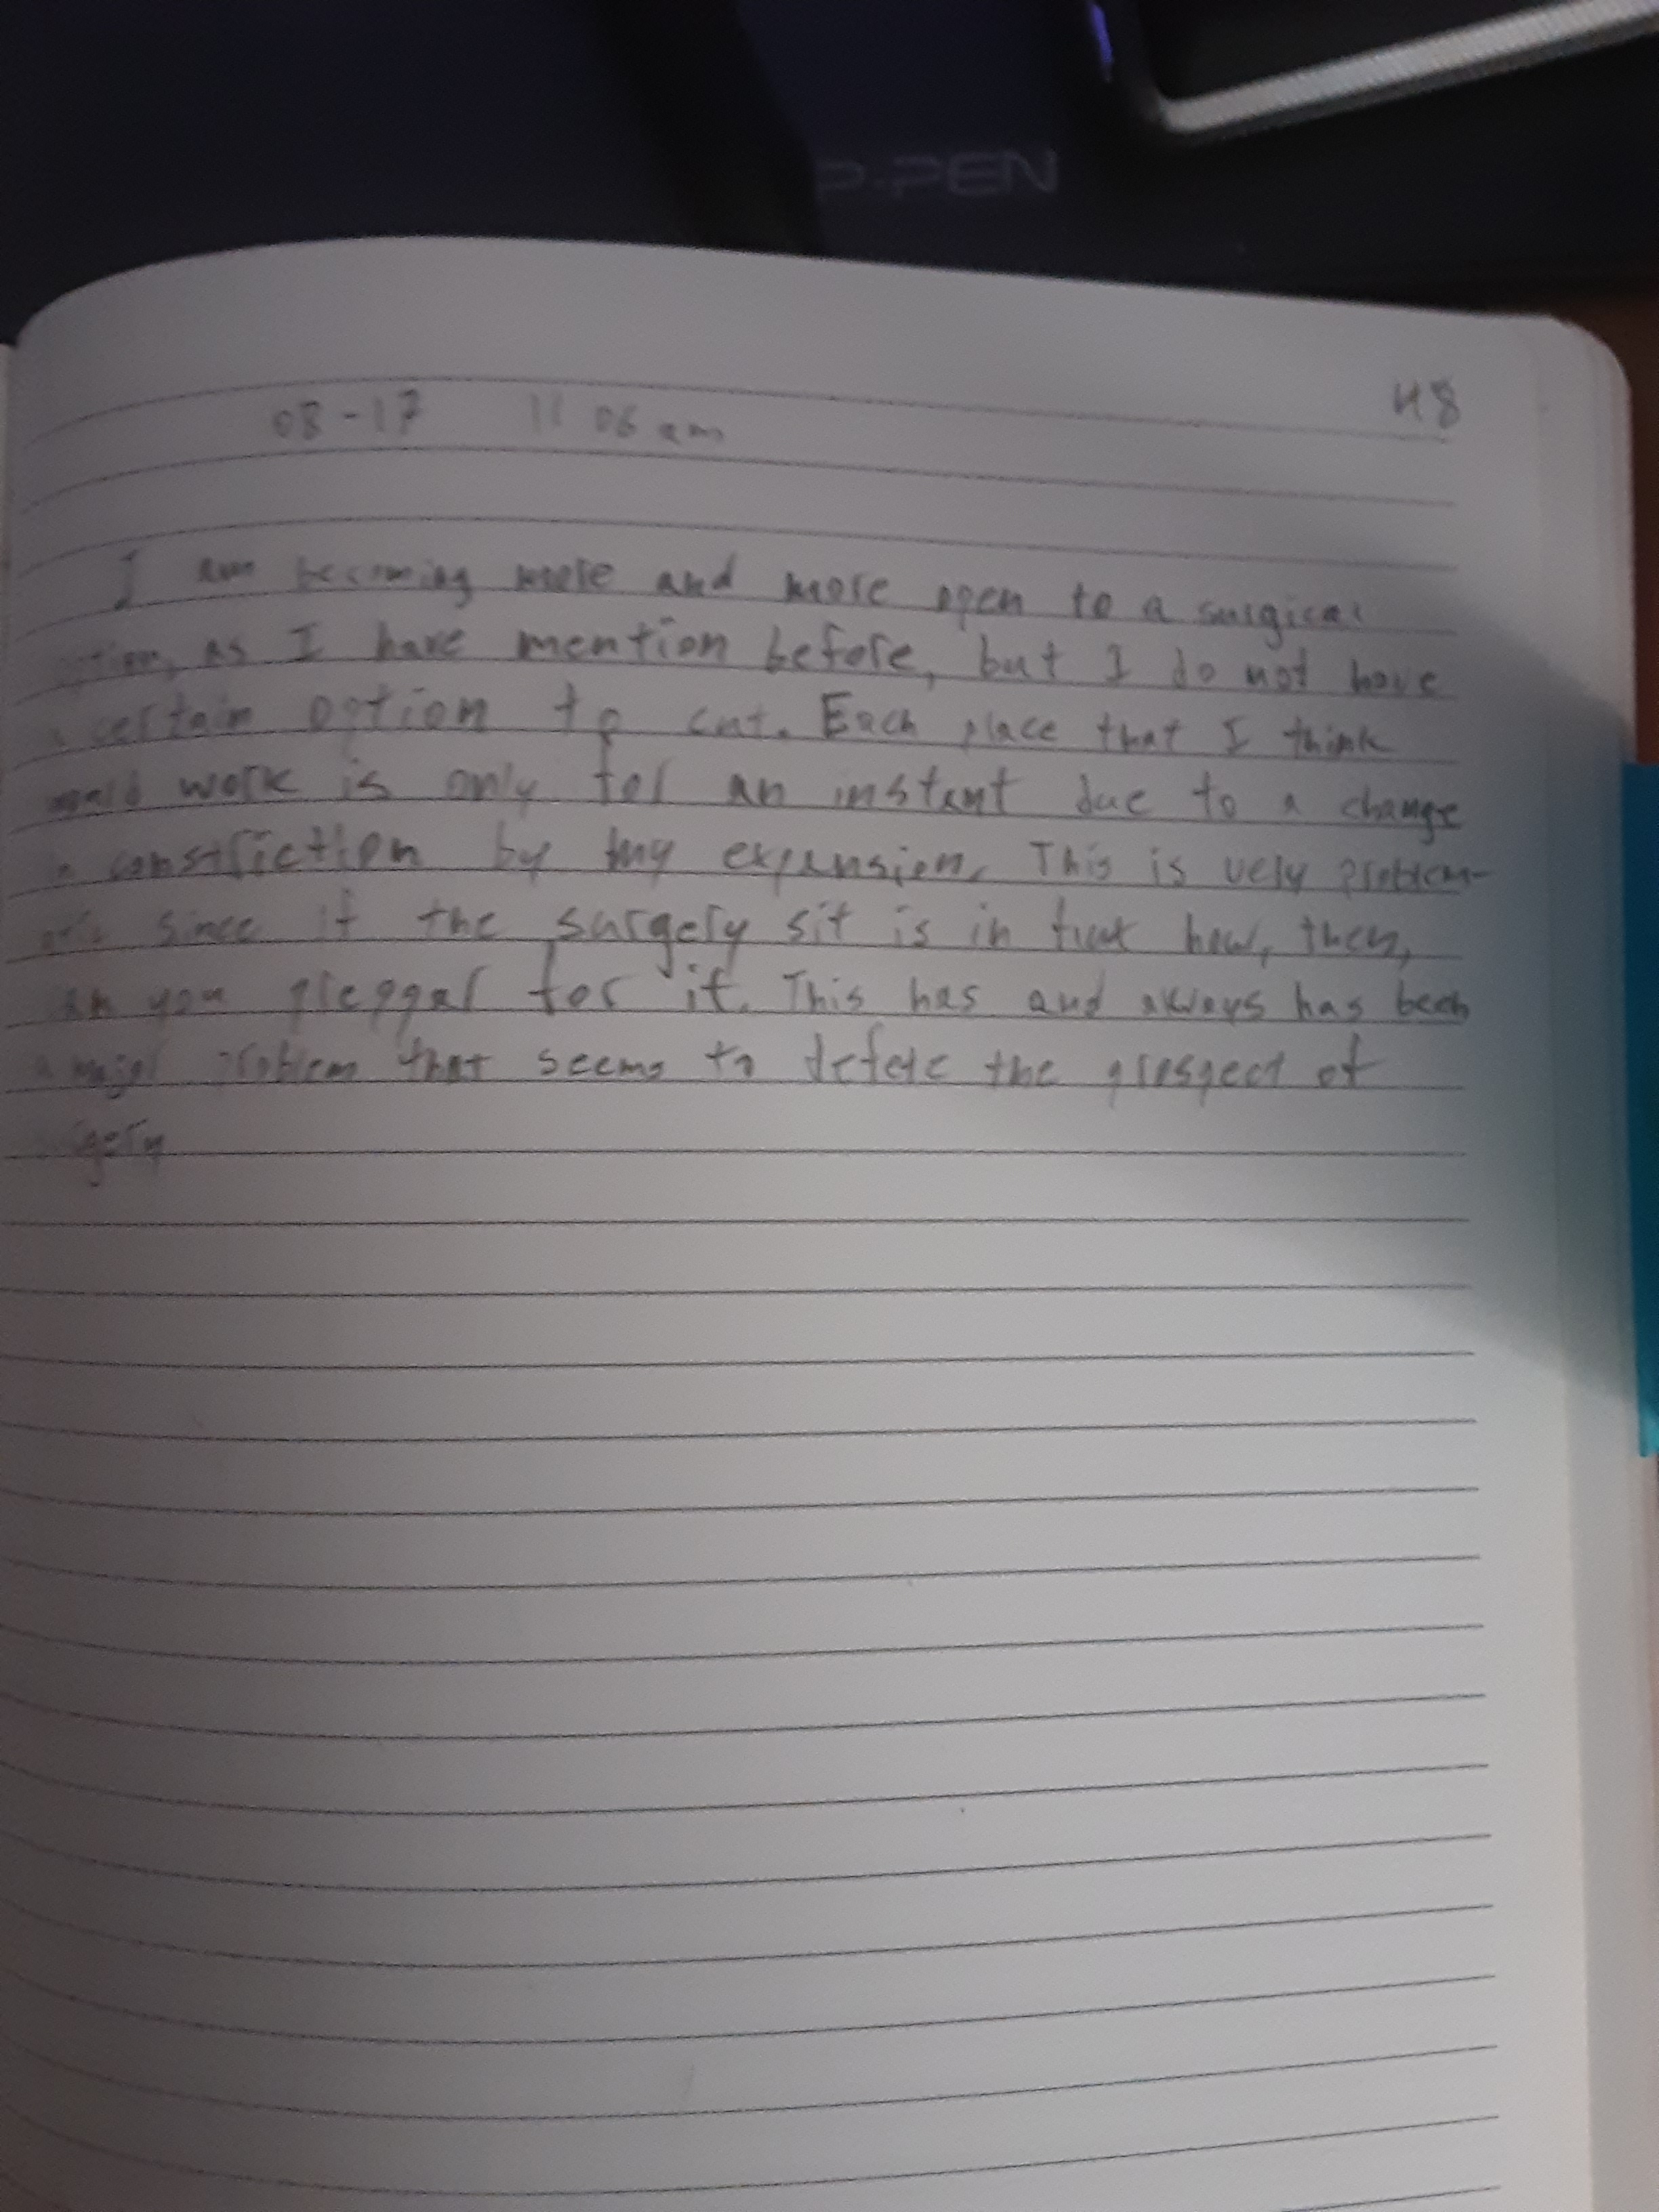 P-PEN
48
08-17 11 06 am
I am becoming more and more open to a surgical
option, as I have mention before, but I do not have
a certain option to cut. Each place that I think
would work is only for an instant due to a change
in constriction by my expansion. This is very problem-
since if the surgery sit is in flux how, then,
can you preppar for it. This has and always has been
a major problem that seems to defere the prospect of
surgery